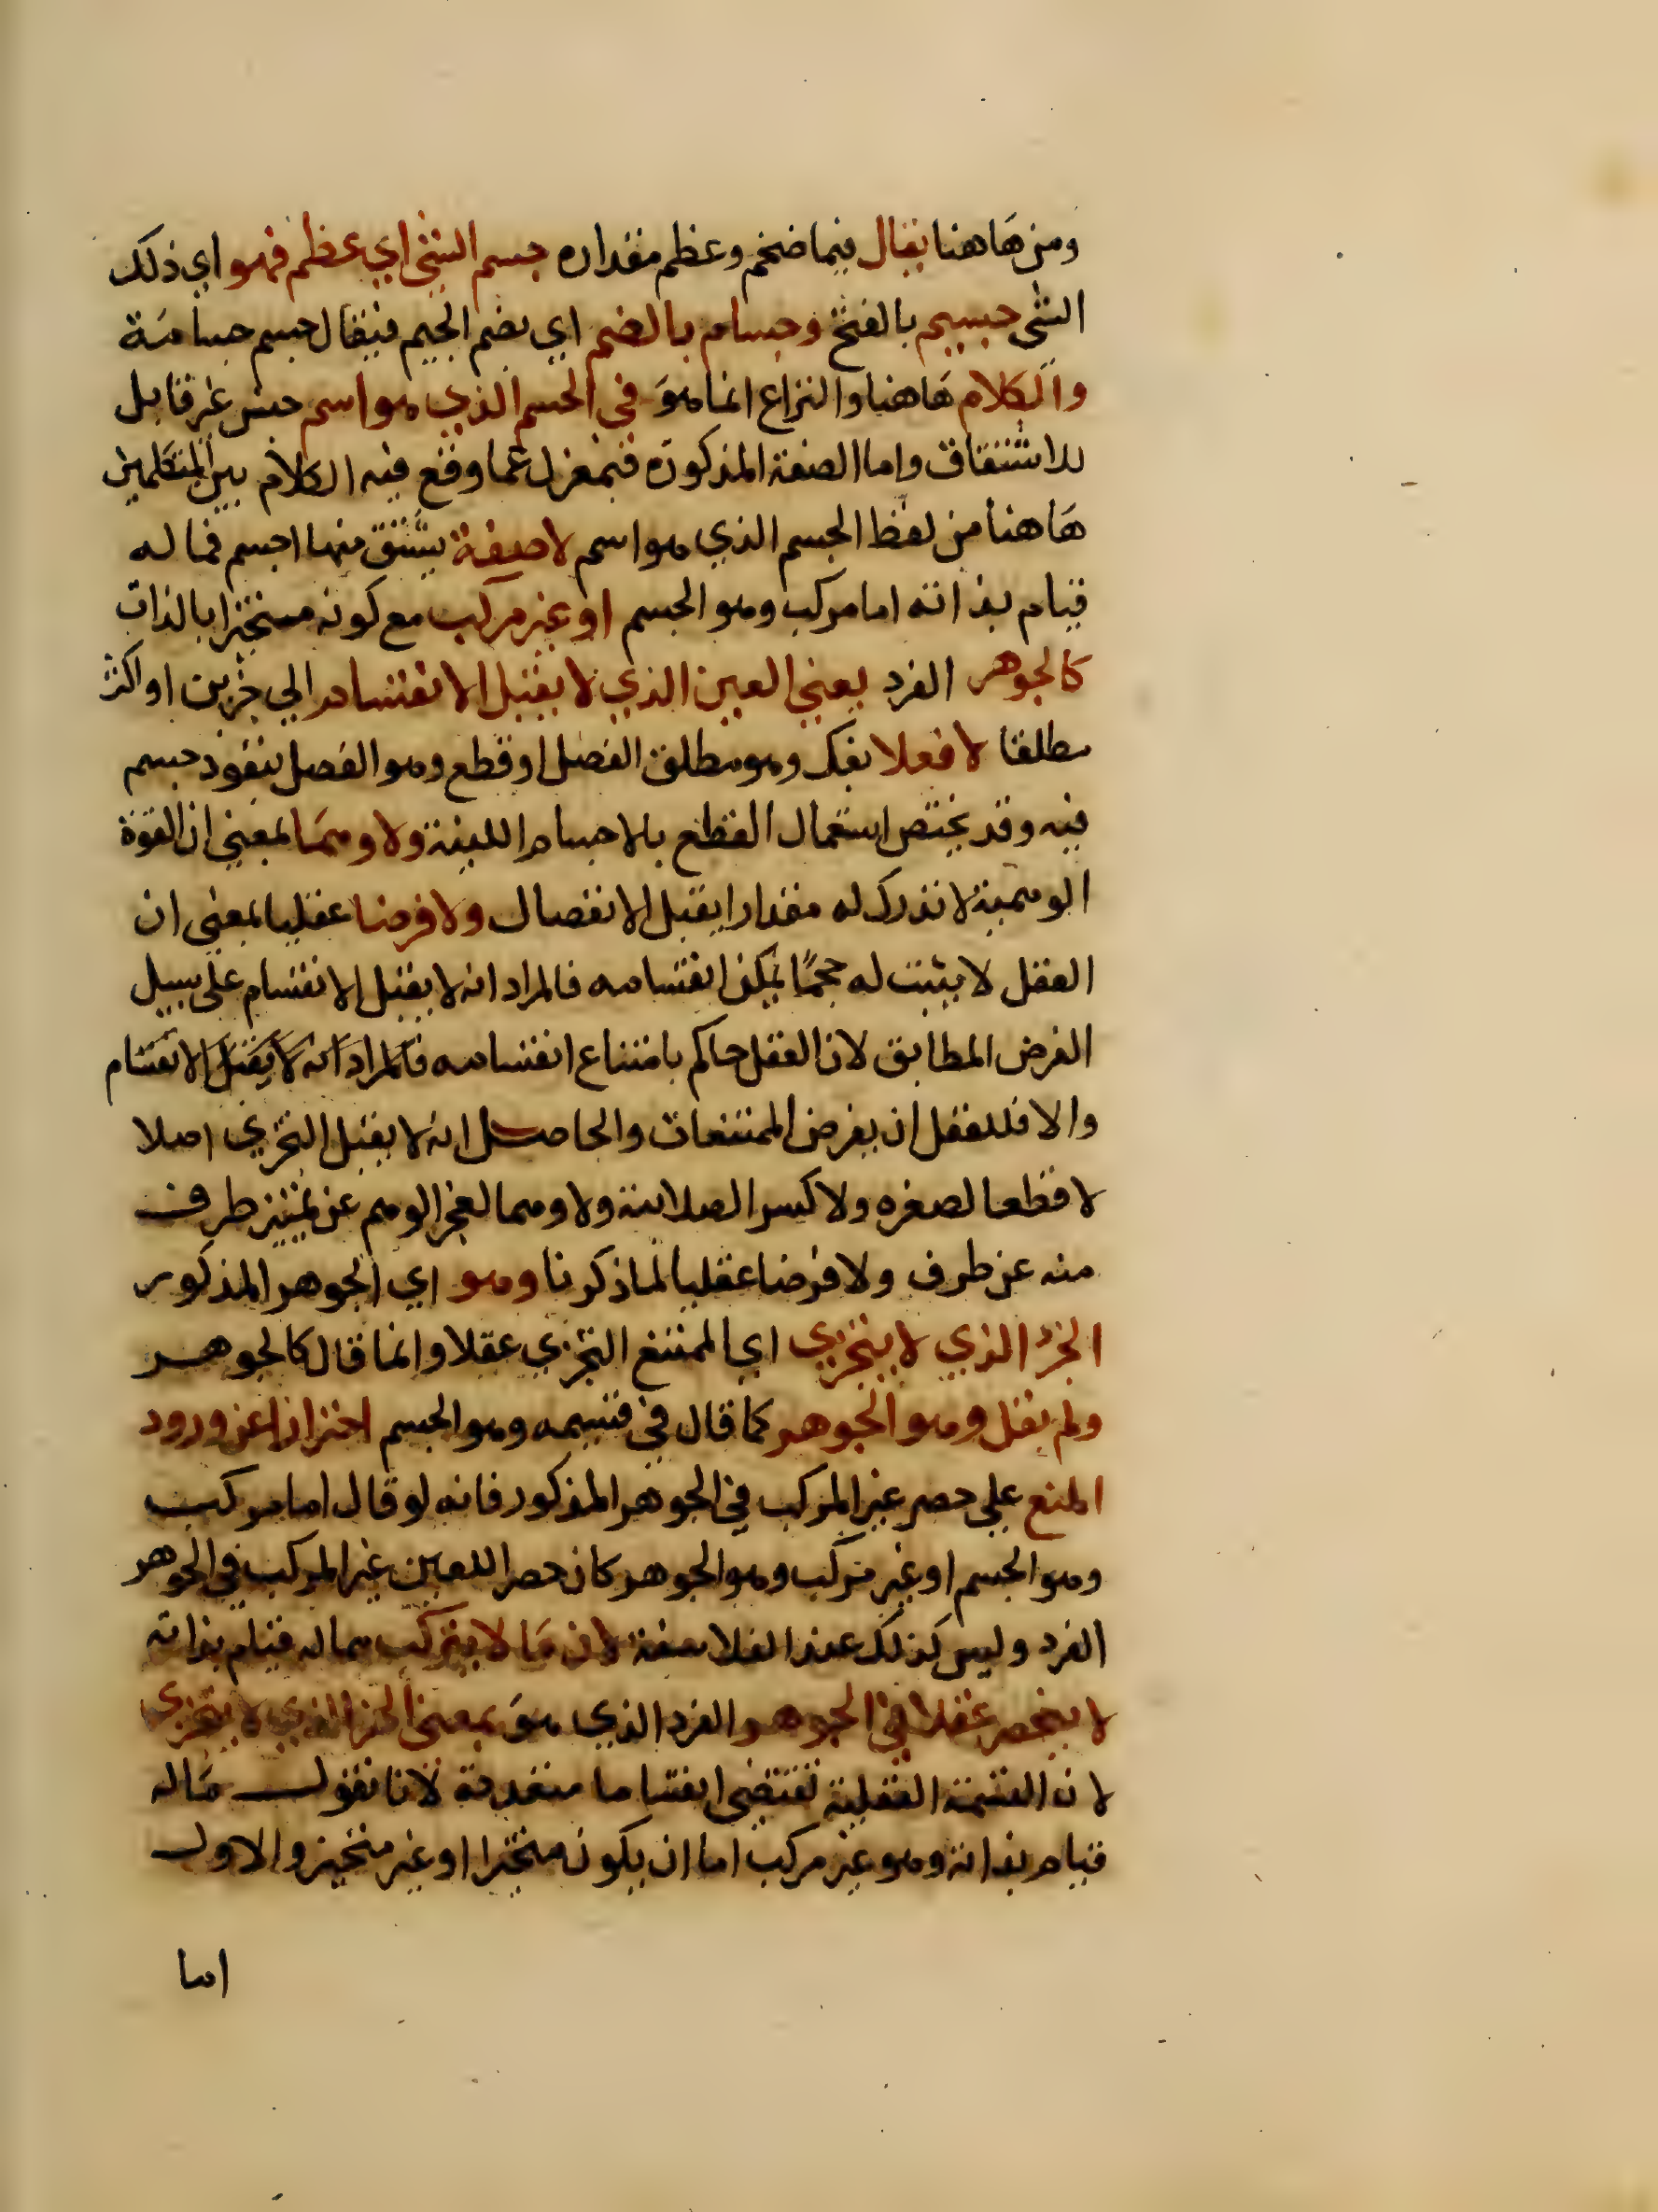 ومن هَاهنا يقال فيما ضخم وعظم مقداره جسم الشئ اي عظم فهو اي ذلك
الشئ جسيم بالفتح وجسام بالضم اي بضم الجيم فيقال جسم جسامة
والكلام هَاهنا والنزاع انما هوَ في الجسم الذي هو اسم جنس غير قابل
للاشتقاق واما الصفة المذكورة فبمعزل عما وقع فيه الكلام بين المتكلمين
هَاهنا من لفظ الجسم الذي هو اسم لا صفة يشتق منها اجسم فما له
قيام بذاته اما مركب وهو الجسم او غير مركب مع كونه متحيزا بالذات
كالجوهر الفرد يعني العين الذي لا يقبل الانقسام الي جزين او اكثر
مطلقا لا فعلا بفك وهو مطلق الفصل او قطع وهو الفصل بنفوذ جسم
فيه وقد يختص استعمال القطع بالاجسام اللينة ولا وهمَا بمعني ان القوة
الوهمية لا تدرك له مقدارا يقبل الانفصال ولا فرضا عقليا بمعني ان
العقل لا يثبت له حجمًا يمكن انقسامه فالمراد انه لا يقبل الانقسام على سبيل
الفرض المطابق لان العقل حاكم بامتناع انقسامه فالمراد انه لا يقبل الانقسام
والا فللعقل ان يفرض الممتنعات والحاصل انه لا يقبل التجزي اصلا
لا قطعا لصغره ولا كسرا لصلابته ولا وهما لعجز الوهم عن تمييز طرف
منه عن طرف ولا فرضا عقليا لما ذكرنا وهو اي الجوهر المذكور
الجزؤ الذي لا يتجزي اي الممتنع التجزي عقلا وانما قال كالجوهر
ولم يقل وهو الجوهر كما قال في قسيمه وهو الجسم احترازا عن ورود
المنع علي حصر غير المركب في الجوهر المذكور فانه لو قال اما مركب
وهو الجسم او غير مركب وهو الجوهر كان حصرا للعين غير المركب في الجوهر
الفرد وليس كذلك عند الفلاسفة لان مَا لا يتركب مما له قيام بذاته
لا ينحصر عقلا في الجوهر الفرد الذي هوَ بمعني الجز الذي لا يتجزي
لان القسمة العقلية تقتضي اقساما متعددة لانا نقول مَا له
قيام بذاته وهو غير مركب اما ان يكون متحيزا او غير متحيز والاول
اما